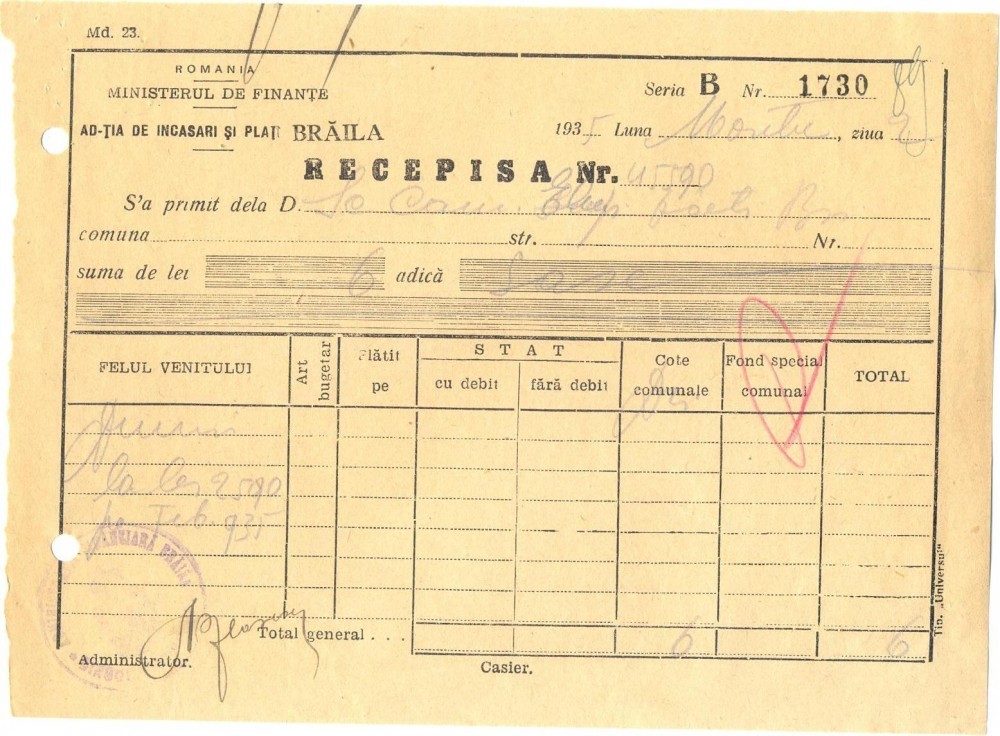 Md. 23.
ROMANIA
MINISTERUL DE FINANȚE
AD-ȚIA DE INCASARI ȘI PLATI BRĂILA
Seria B Nr. 1730
1935 Luna , ziua
RECEPISA Nr.
S'a primit dela D.
comuna str. Nr.
suma de lei 6 adică Sase
FELUL VENITULUI
Art bugetar
Plătit pe
STAT
cu debit
fără debit
Cote comunale
Fond special comunal
TOTAL
la lei 2590
Feb. 935
Total general . . . 6 6
Administrator.
Casier.
Tip. „Universul"